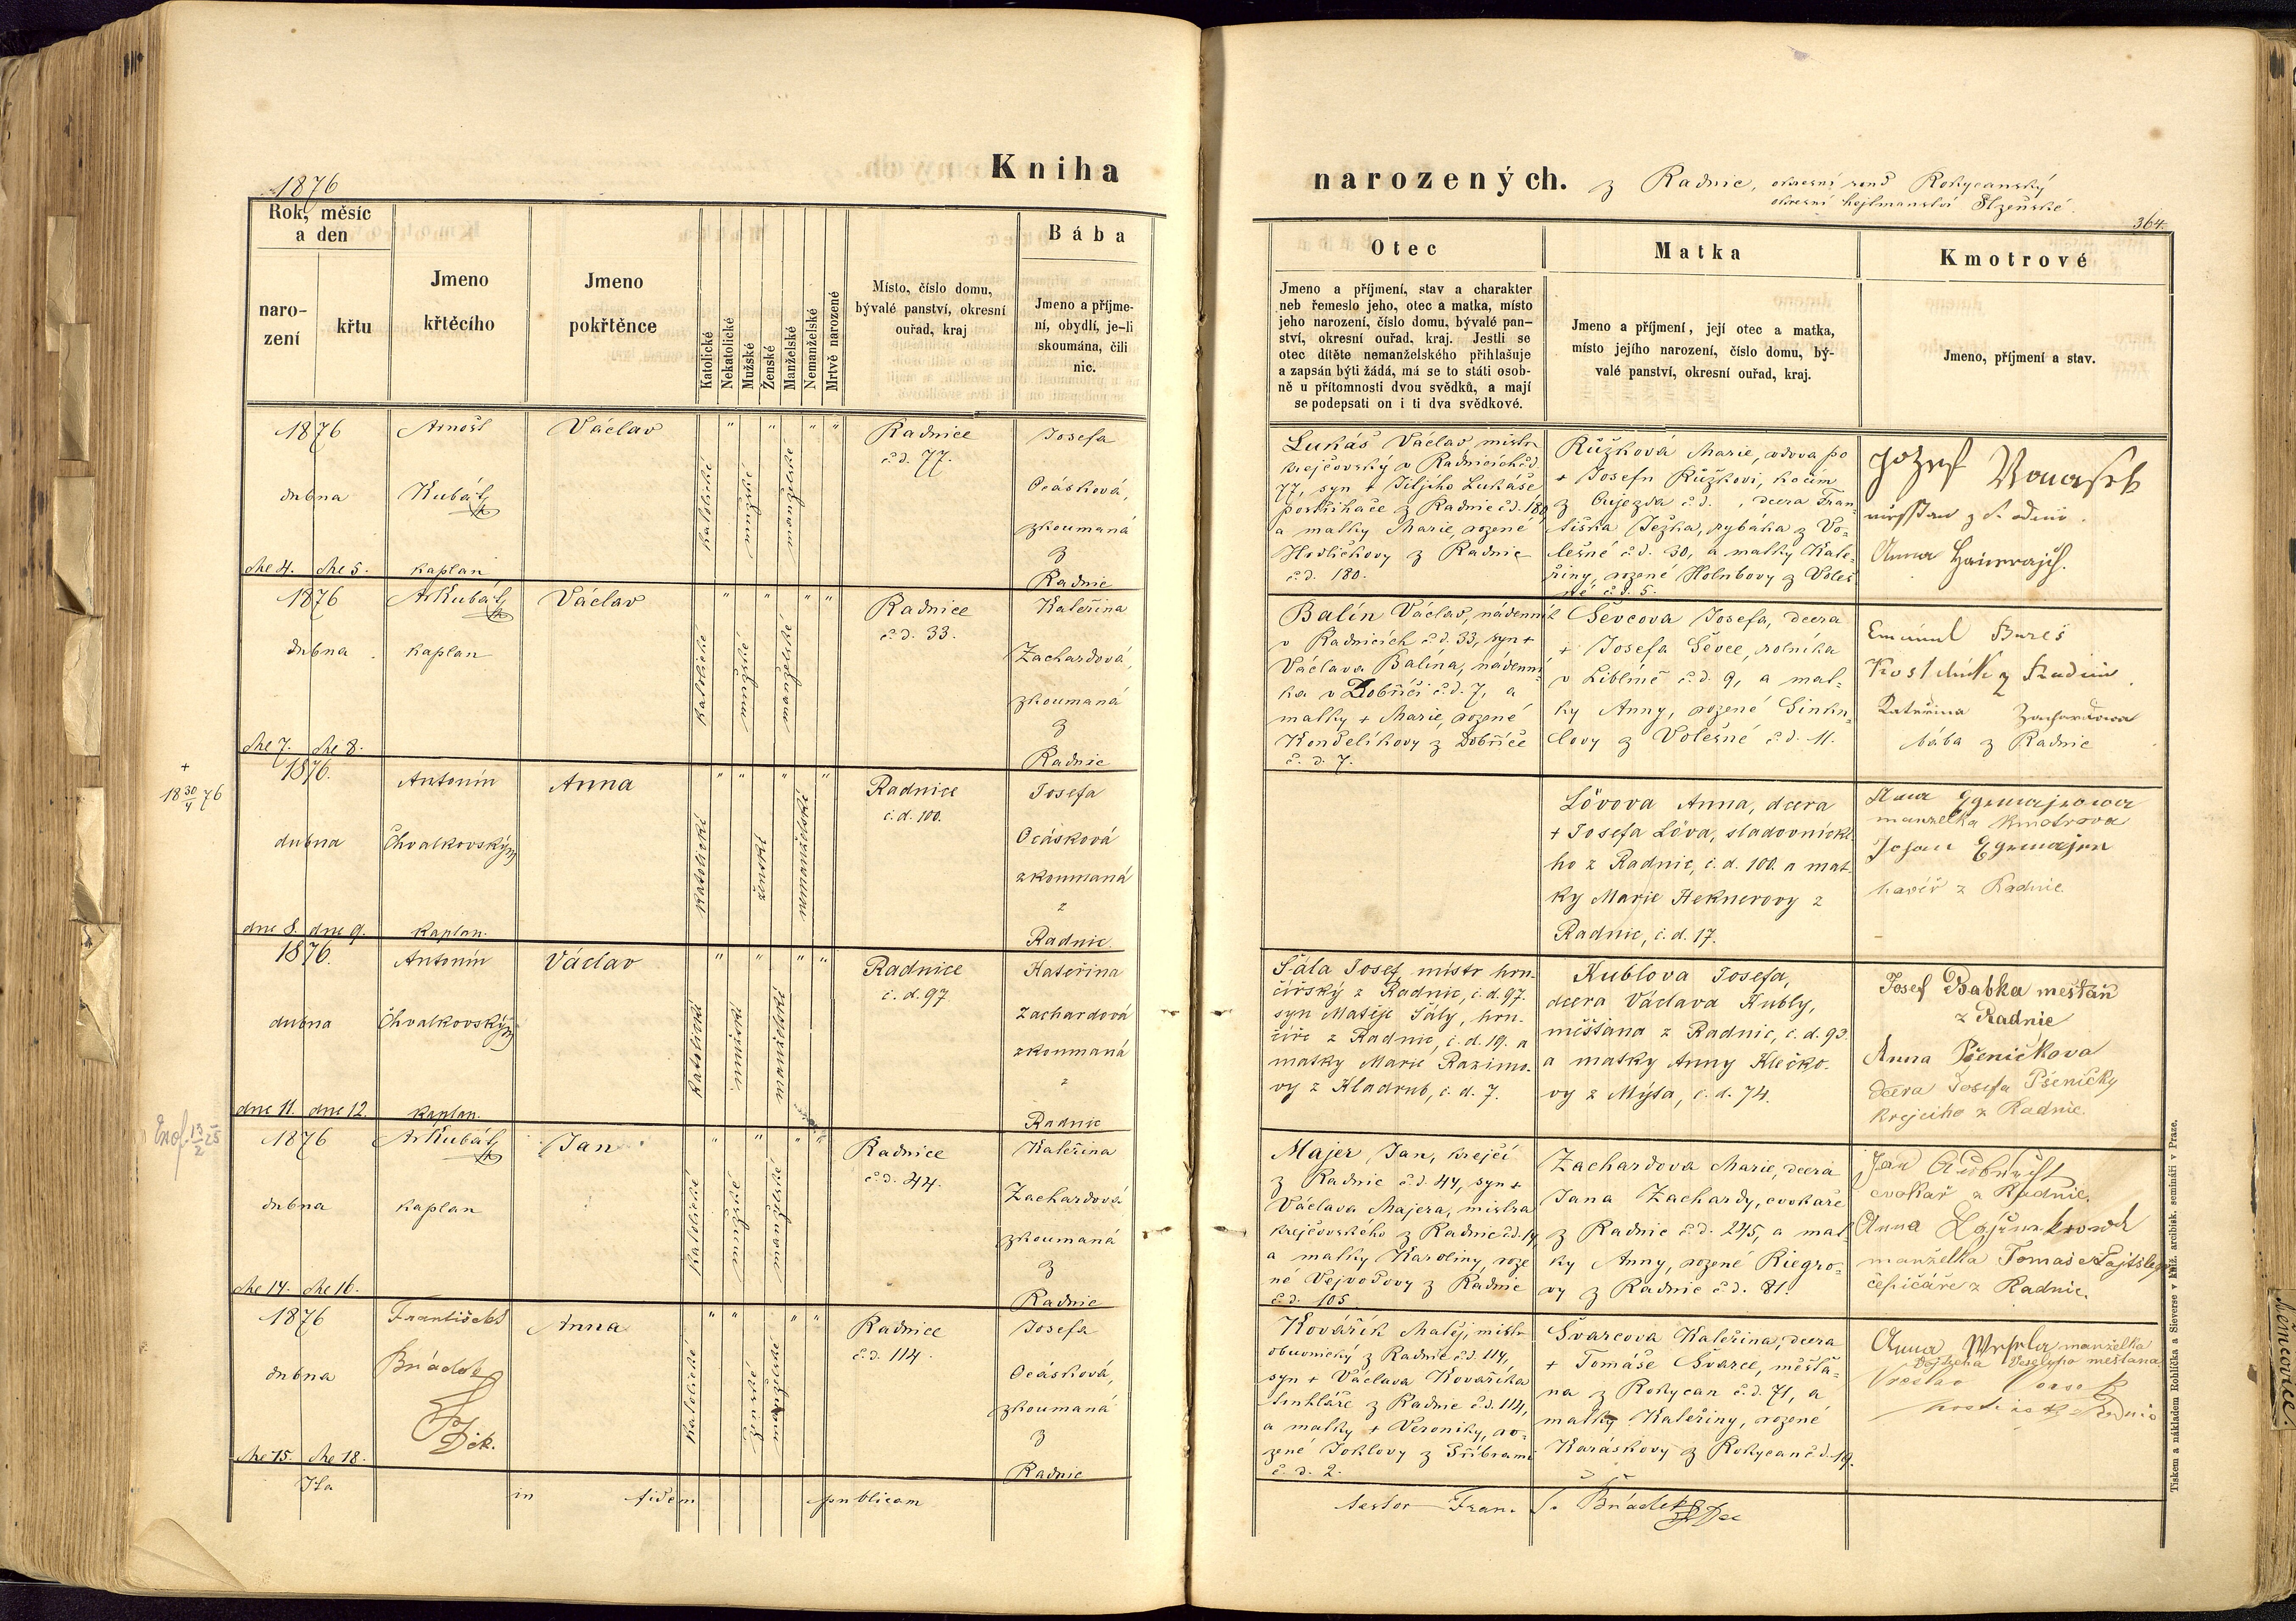 Kniha
narozených.
z Radnic, okresní soud Rokycanský
okresní hejtmanství Plzeňské.
1876
364.
Rok, měsíc
a den
naro-
zení
křtu
Jmeno
křtěcího
Jmeno
pokřtěnce
Katolické
Nekatolické
Mužské
Ženské
Manželské
Nemanželské
Mrtvě narozené
Místo, číslo domu,
bývalé panství, okresní
ouřad, kraj
Bába
Jmeno a příjme-
ní, obydlí, je-li
skoumána, čili
nic.
Otec
Jmeno a příjmení, stav a charakter
neb řemeslo jeho, otec a matka, místo
jeho narození, číslo domu, bývalé pan-
ství, okresní ouřad, kraj. Jestli se
otec dítěte nemanželského přihlašuje
a zapsán býti žádá, má se to státi osob-
ně u přítomnosti dvou svědků, a mají
se podepsati on i ti dva svědkové.
Matka
Jmeno a příjmení, její otec a matka,
místo jejího narození, číslo domu, bý-
valé panství, okresní ouřad, kraj.
Kmotrové
Jmeno, příjmení a stav.
1876
dubna
dne 4. dne 5.
Arnošt
Kubát
kaplan
Václav
katolické
mužské
manželské
Radnice
č.d. 77.
Josefa
Ocásková,
zkoumaná
z
Radnic
Lukáš Václav, mistr
krejčovský v Radnicích č.d.
77, syn + Jiljího Lukáše
postřihače z Radnic č.d. 180
a matky Marie, rozené
Hodličkovy z Radnic
č.d. 180.
Růžková Marie, vdova po
+ Josefu Růžkovi, kočím
z Oujezda č.d. , dcera Fran-
tiška Ježka, rybáka z Vo-
lešné č.d. 30, a matky Kate-
řiny, rozené Holubovy z Voleš
né č.d. 5.
Jozef
Anna
1876
dubna
dne 7. dne 8.
Ar Kubát
kaplan
Václav
katolické
mužské
manželské
Radnice
č.d. 33.
Kateřina
Zachardová,
zkoumaná
z
Radnic
Balín Václav, nádenník
v Radnicích č.d. 33, syn +
Václava Balína, nádenní-
ka v Dobříči č.d. 7, a
matky + Marie, rozené
Kondelíkovy z Dobříče
č. d. 7.
Ševcova Josefa, dcera
+ Josefa Ševce, rolníka
v Liblíně č.d. 9, a mat-
ky Anny, rozené Sinku-
lovy z Volešné č.d. 11.
Bureš
Kateřina Zachardowa
bába z Radnic
+
18 30/4 76
1876.
dubna
dne 8. dne 9.
Antonín
Chvalkovský
kaplan.
Anna
katolické
ženské
nemanželské
Radnice
č.d. 100.
Josefa
Ocásková
zkoumaná
z
Radnic.
Lövova Anna, dcera
+ Josefa Löva, sladovnické-
ho z Radnic, č.d. 100. a mat-
ky Marie Heknerovy z
Radnic, č.d. 17.
manzelka kmotrova
havíř z Radnic.
1876.
dubna
dne 11. dne 12.
Antonín
Chvalkovský
kaplan.
Václav
katolické
mužské
manželské
Radnice
č.d. 97
Kateřina
Zachardová
zkoumaná
z
Radnic
Šála Josef, mistr hrn-
čířský z Radnic, č.d. 97.
syn Matěje Šály, hrn-
číře z Radnic, č.d. 19. a
matky Marie Razimo-
vy z Kladrub, č.d. 7.
Kublova Josefa,
dcera Václava Kubly,
měšťana z Radnic, č.d. 93.
a matky Anny Klečko-
vy z Mýta, č.d. 74.
Josef Babka mešťan
z Radnic
Anna Pšeničkova
dcera Josefa Pšeničky
krejciho z Radnic.
1876
dubna
dne 14. dne 16.
Ar Kubát
kaplan
Jan
katolické
mužské
manželské
Radnice
č.d. 44.
Kateřina
Zachardová
zkoumaná
z
Radnic
Majer Jan, krejčí
z Radnic č.d. 44, syn +
Václava Majera, mistra
krejčovského z Radnic č.d. 14
a matky Karoliny, roze
né Vejvodovy z Radnic
č.d. 105.
Zachardova Marie, dcera
Jana Zachardy, cvokaře
z Radnic č.d. 245, a mat
ky Anny, rozené Riegro-
vy z Radnic č.d. 81.
Jan
cvokař z Radnic.
Anna
manželka Tomaše
čepičáře z Radnic.
1876
dubna
dne 15. dne 18.
František
Briádek
Děk.
Anna
katolické
ženské
manželské
Radnice
č.d. 114.
Josefa
Ocásková,
zkoumaná
z
Radnic
Kovářík Matěj, mistr
obuvnický z Radnic č.d. 114,
syn + Václava Kovaříka
truhláře z Radnic č.d. 114,
a matky + Veroniky, ro-
zené Joklovy z Příbrami
č. d. 2.
Švarcova Kateřina, dcera
+ Tomáše Švarce, měšťa-
na z Rokycan č.d. 71, a
matky Kateřiny, rozené
Karáskovy z Rokycan č.d. 19.
Anna manželka
Veselyho mešťana
Ita in fidem publicam
testor Fran. S. Briádek Dec
Tiskem a nákladem Rohlíčka a Sieverse v kníž. arcibisk. semináři v Praze.
Němčovice.